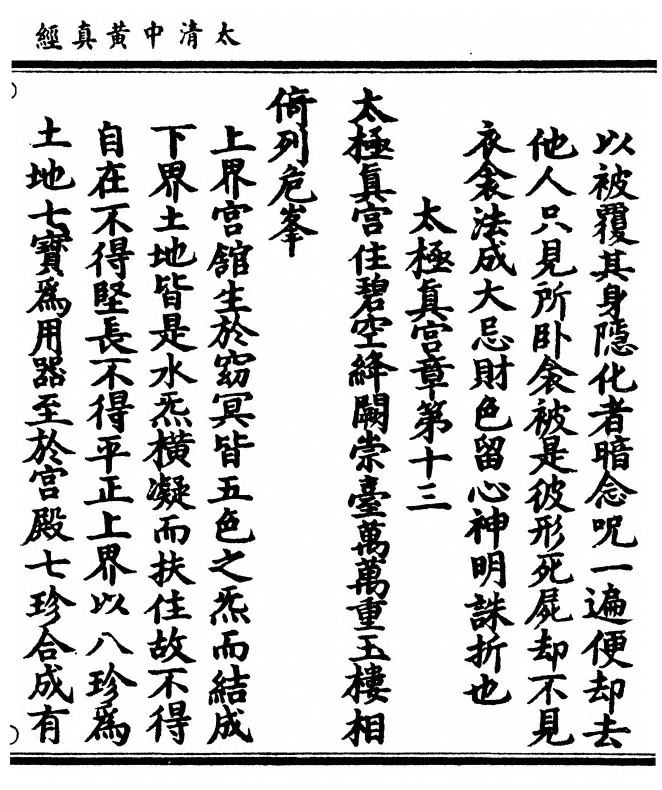 太清中黃真經
以被覆其身隱化者暗念呪一遍便却去
他人只見所卧衾被是彼形死屍却不見
衣衾法成大忌財色留心神明誅折也
太極真宮章第十三
太極真宮住碧空絳闕崇臺萬萬重玉樓相
倚列危峯
上界宮館生於窈冥皆五色之炁而結成
下界土地皆是水炁橫凝而扶住故不得
自在不得堅長不得平正上界以八珍為
土地七寶為用器至於宮殿七珍合成有